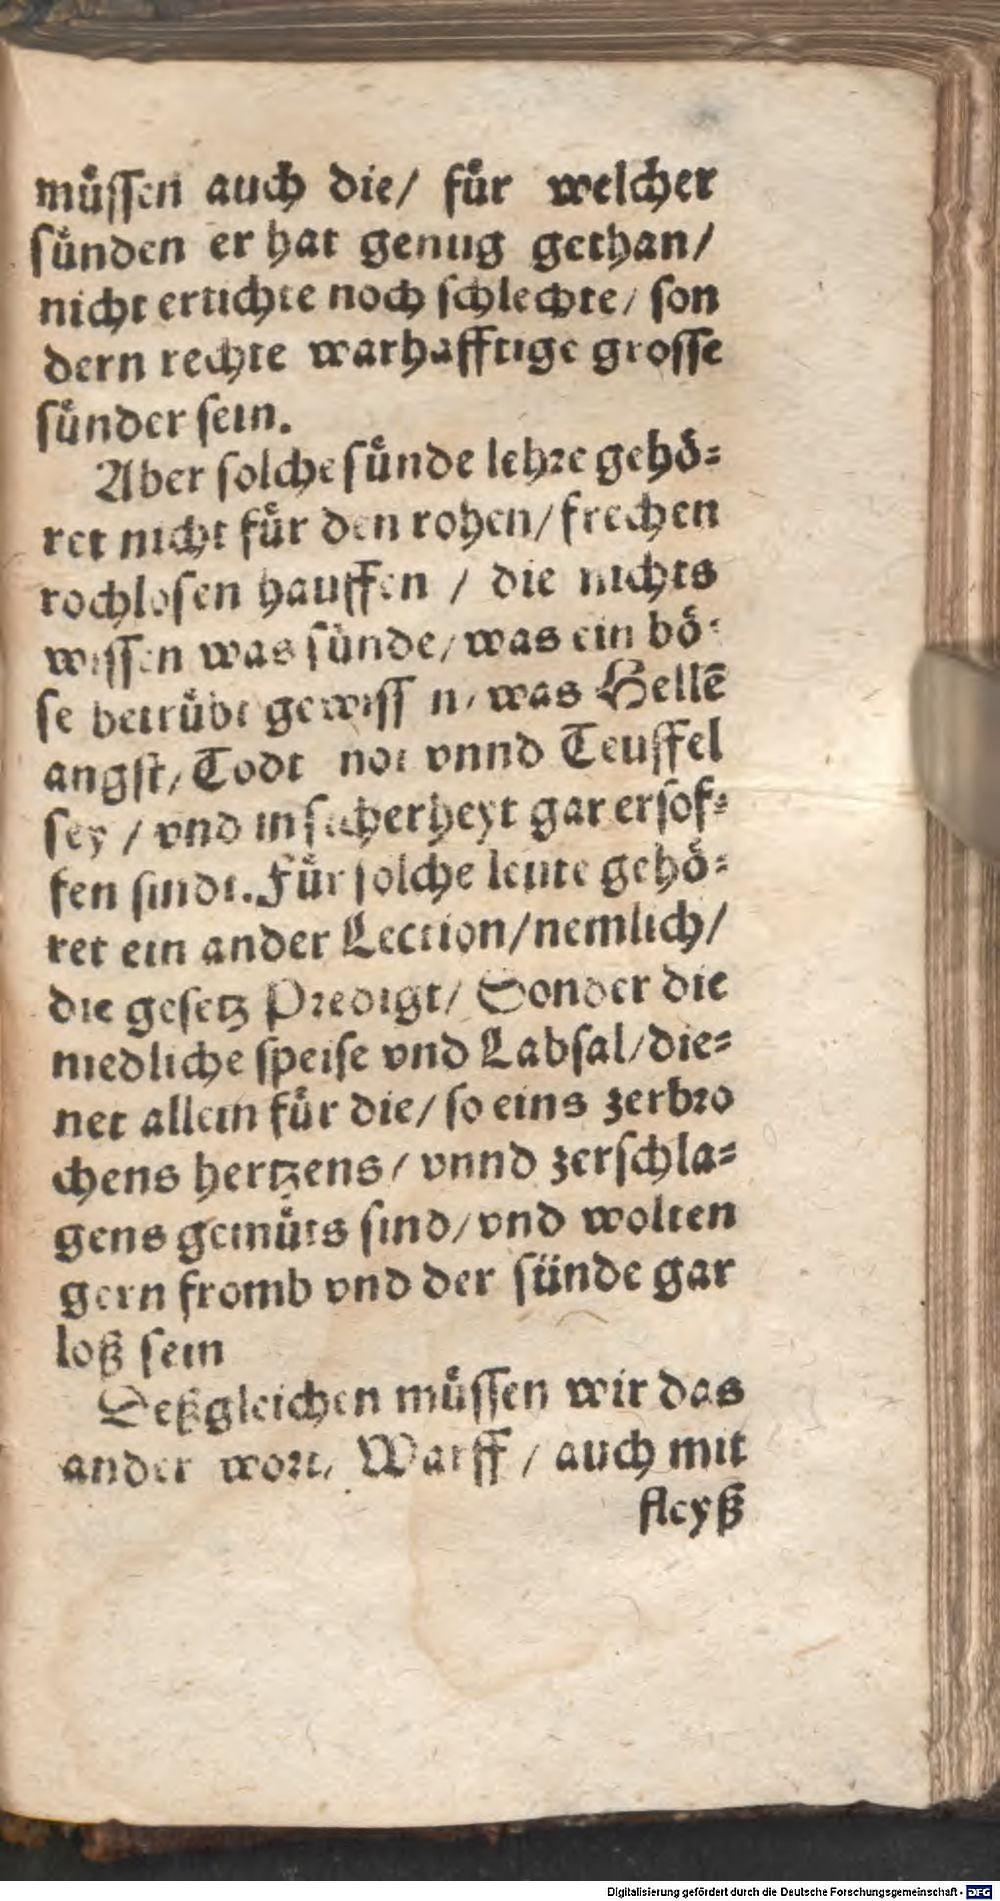 muͤſſen auch die/ fuͤr welcher
ſuͤnden er hat genug gethan/
nicht ertichte noch ſchlechte/ ſon
dern rechte warhafftige groſſe
ſuͤnder ſein.
Aber ſolche ſuͤnde lehre gehoͤ⸗
ret nicht fuͤr den rohen/ frechen
rochloſen hauffen / die nichts
wiſſen was ſuͤnde/ was ein boͤ⸗
ſe betruͤbt gewiſſ n/ was Hellē
angſt/ Todt not vnnd Teuffel
ſey / vnd in ſicherheyt gar erſof⸗
fen ſindt. Fuͤr ſolche leute gehoͤ⸗
ret ein ander Lection/ nemlich/
die geſetz Predigt/ Sonder die
niedliche ſpeiſe vnd Labſal/ die⸗
net allein fuͤr die/ ſo eins zerbro
chens hertzens/ vnnd zerſchla⸗
gens gemuͤts ſind/ vnd wolten
gern fromb vnd der ſuͤnde gar
loß ſein
Deßgleichen muͤſſen wir das
ander wort/ Warff / auch mit
fleyß
Digitalisierung gefördert durch die Deutsche Forschungsgemeinschaft - DFG